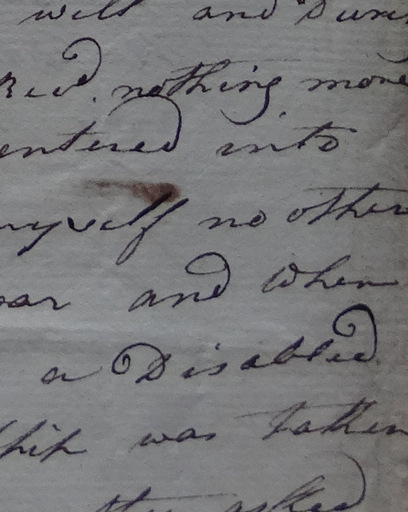 will and
nothing more
entered into
myself no other
and when
a Disabled
Ship was taken
asked